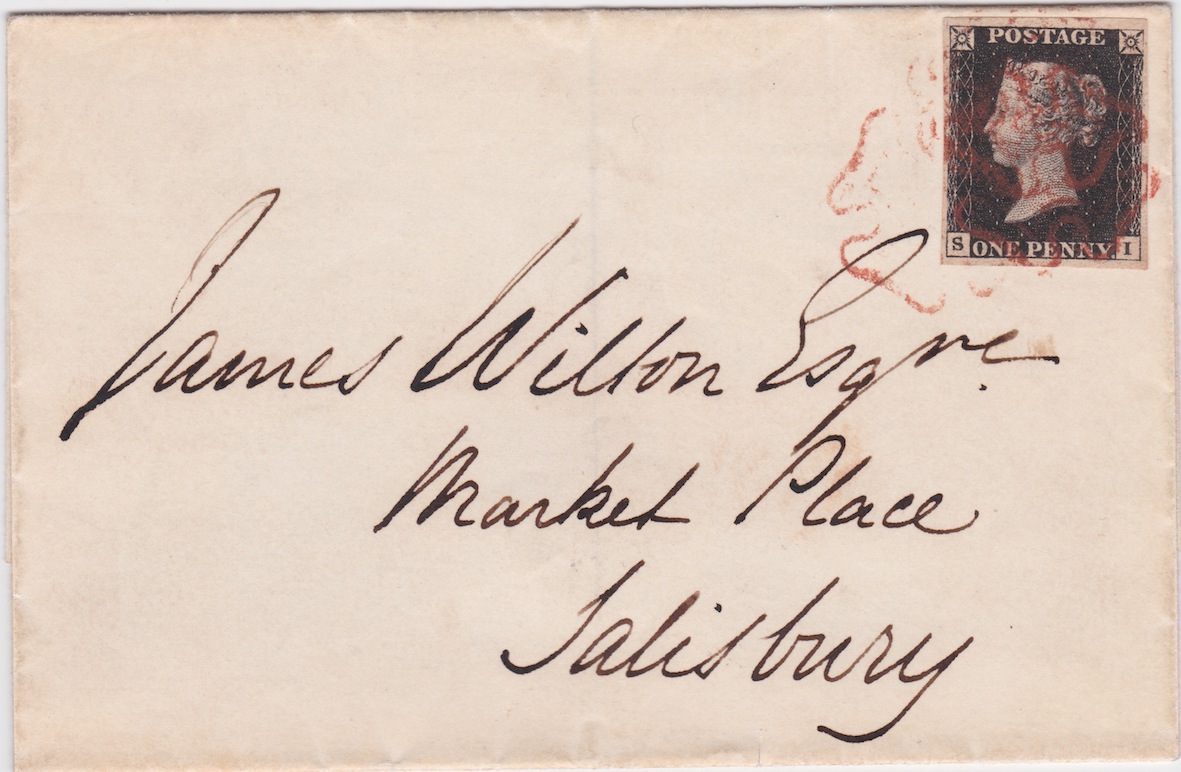 POSTAGE
S ONE PENNY. I
James Wilton Esqre.
Market Place
Salisbury